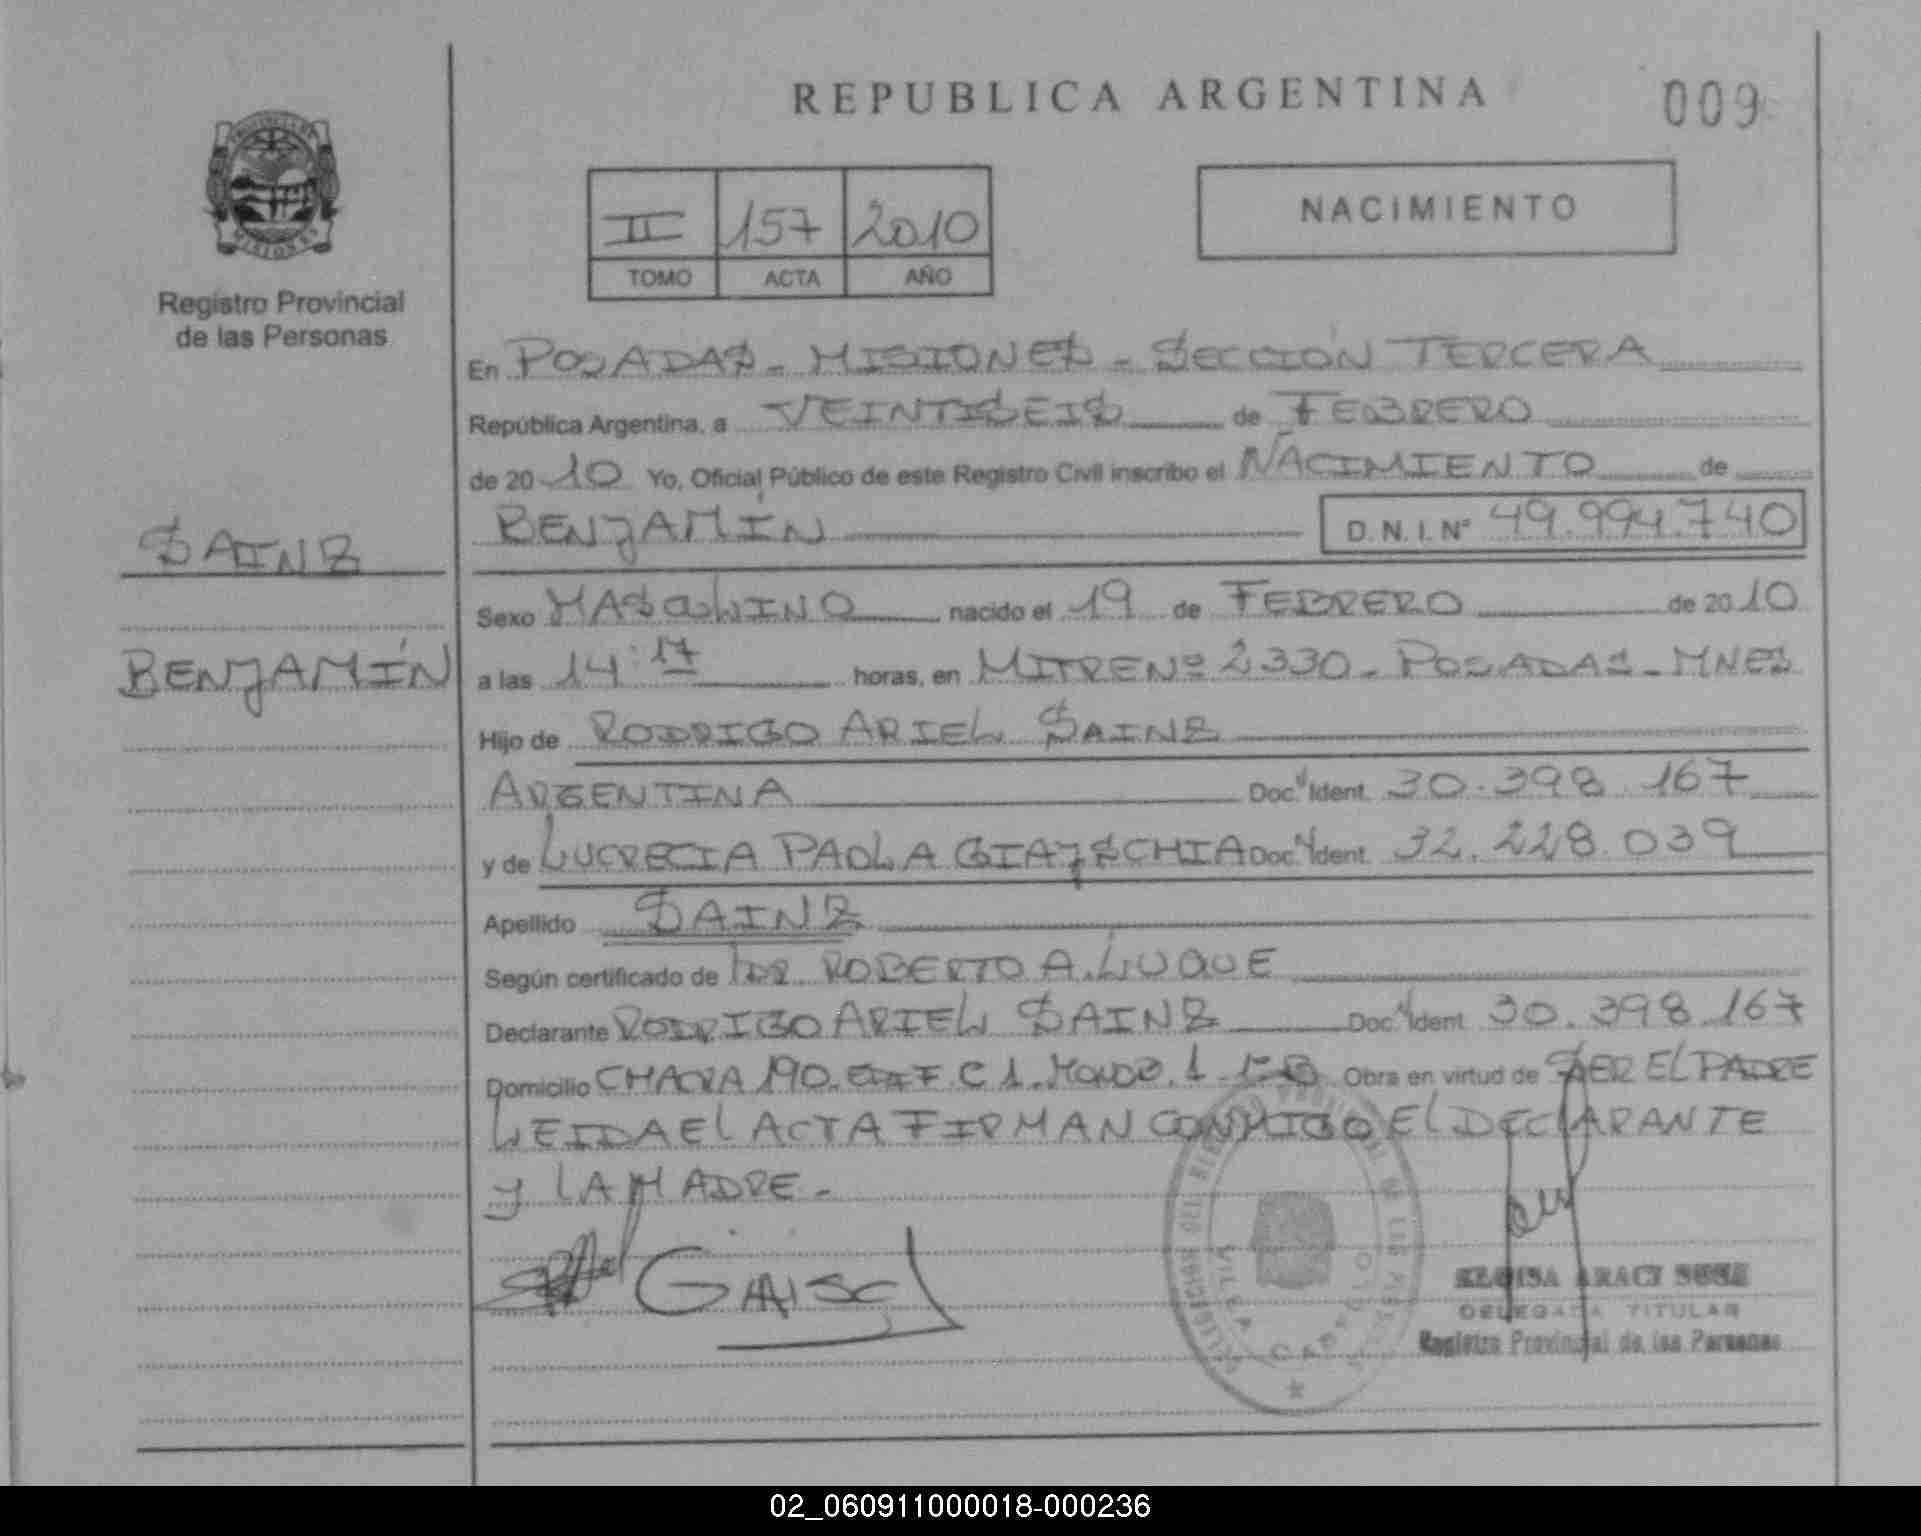 REPUBLICA ARGENTINA
009
II 157 2010
TOMO ACTA AÑO
NACIMIENTO
Registro Provincial
de las Personas
En POSADAS - MISIONES - SECCIÓN TERCERA
República Argentina, a VEINTISEIS de FEBRERO
de 20 10 Yo, Oficial Público de este Registro Civil inscribo el NACIMIENTO de
BENJAMÍN D.N.I. Nº 49.994.740
SAINZ
BENJAMÍN
Sexo MASCULINO nacido el 19 de FEBRERO de 20 10
a las 14:17 horas, en MITRE Nº 2330 - POSADAS - MNES
Hijo de RODRIGO ARIEL SAINZ
ARGENTINA Doc. Ident. 30.398.167
y de LUCRECIA PAOLA GIAJSCHIA Doc. Ident. 32.228.039
Apellido SAINZ
Según certificado de DR. ROBERTO A. LUQUE
Declarante RODRIGO ARIEL SAINZ Doc. Ident. 30.398.167
Domicilio CHACRA 190. EDIF C 1. 1 Obra en virtud de SER EL PADRE
LEIDA EL ACTA FIRMAN CONMIGO EL DECLARANTE
Y LA MADRE -
VILLA CABELLO
DELEGADA TITULAR
Registro Provincial de las Personas
02_060911000018-000236